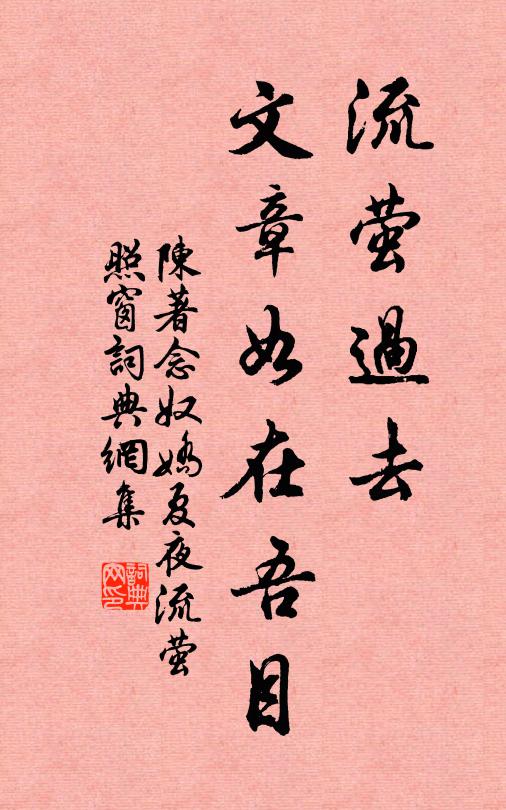 流萤過去
文章如在吾目
陳著念奴嬌夏夜流萤
照窗詞典網集
詞典网印